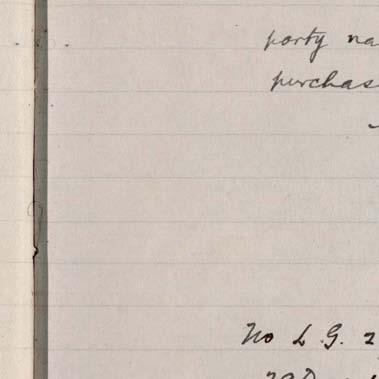 party na
purchas
No L.G. 2